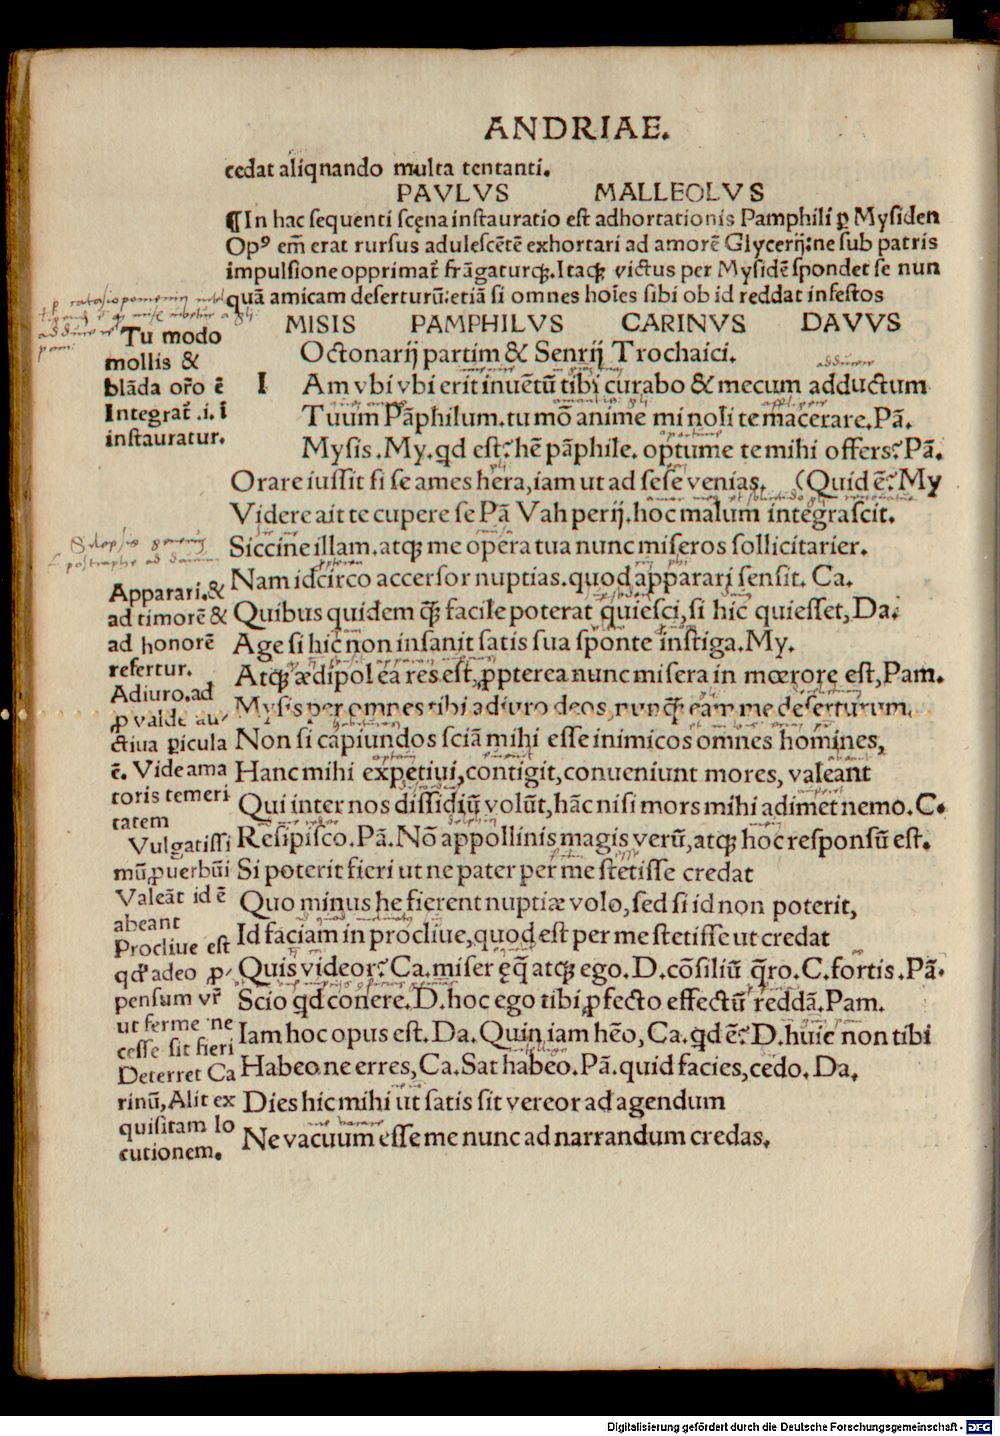 ANDRIAE.
cedat aliqnando multa tentanti.
PAVLVS MALLEOLVS
¶In hac sequenti scęna instauratio est adhortationis Pamphili ꝑ Mysiden
Opꝰ em̄ erat rursus adulescētē exhortari ad amorē Glycerij:ne sub patris
impulsione opprimat᷑ frāgaturqꝫ.Itaqꝫ victus per Mysidē spondet se nun
quā amicam deserturū:etiā si omnes hoīes sibi ob id reddat infestos
MISIS PAMPHILVS CARINVS DAVVS
Octonarij partim & Senrij Trochaici.
I Am vbi vbi erit inuētū tibi curabo & mecum adductum
Tuum Pāphilum.tu mō anime mi noli te macerare.Pā.
Mysis.My.qd est? hē pāphile. optume te mihi offers? Pā.
Orare iussit si se ames hera,iam ut ad sese venias. (Quid ē? My
Videre ait te cupere se Pā Vah perij.hoc malum integrascit.
Siccine illam.atqꝫ me opera tua nunc miseros sollicitarier.
Nam idcirco accersor nuptias.quod apparari sensit. Ca.
Quibus quidem qꝫ̄ facile poterat quiesci,si hic quiesset,Da.
Age si hic non insanit satis sua sponte instiga.My.
Atqꝫ ædipol ea res est,ꝓpterea nunc misera in mœrore est,Pam.
Mysis per omnes tibi adiuro deos,nunqꝫ̄ eam me deserturum,
Non si capiundos sciā mihi esse inimicos omnes homines,
Hanc mihi expetiui,contigit,conueniunt mores, valeant
Qui inter nos dissidiū volūt,hāc nisi mors mihi adimet nemo.C.
Resipisco.Pā. Nō appollinis magis verū,atqꝫ hoc responsū est.
Si poterit fieri ut ne pater per me stetisse credat
Quo minus he fierent nuptiæ volo,sed si id non poterit,
Id faciam in procliue,quod est per me stetisse ut credat
Quis videor? Ca.miser ęq̄ atqꝫ ego.D.cōsiliū q̄ro.C.fortis.Pā.
Scio qd conere.D.hoc ego tibi ꝓfecto effectū reddā.Pam.
Iam hoc opus est. Da.Quin iam hēo, Ca.qd ē? D.huic non tibi
Habeo.ne erres,Ca.Sat habeo.Pā.quid facies,cedo.Da.
Dies hic mihi ut satis sit vereor ad agendum
Ne vacuum esse me nunc ad narrandum credas.
Tu modo
mollis &
blāda or̄o ē
Integrat᷑.i.ī
instauratur.
Apparari.&
ad timorē &
ad honorē
refertur.
Adiuro.ad
ꝓ valde au/
ctiua ꝑicula
ē. Vide ama
toris temeri
tatem
Vulgatissi
mū ꝓuerbiū
Valeāt id ē
abeant
Procliue est
qd adeo ꝓ/
pensum vr̄
ut ferme ne
cesse sit fieri
Deterret Ca
rinū,Alit ex
quisitam lo
cutionem.
Digitalisierung gefördert durch die Deutsche Forschungsgemeinschaft - DFG